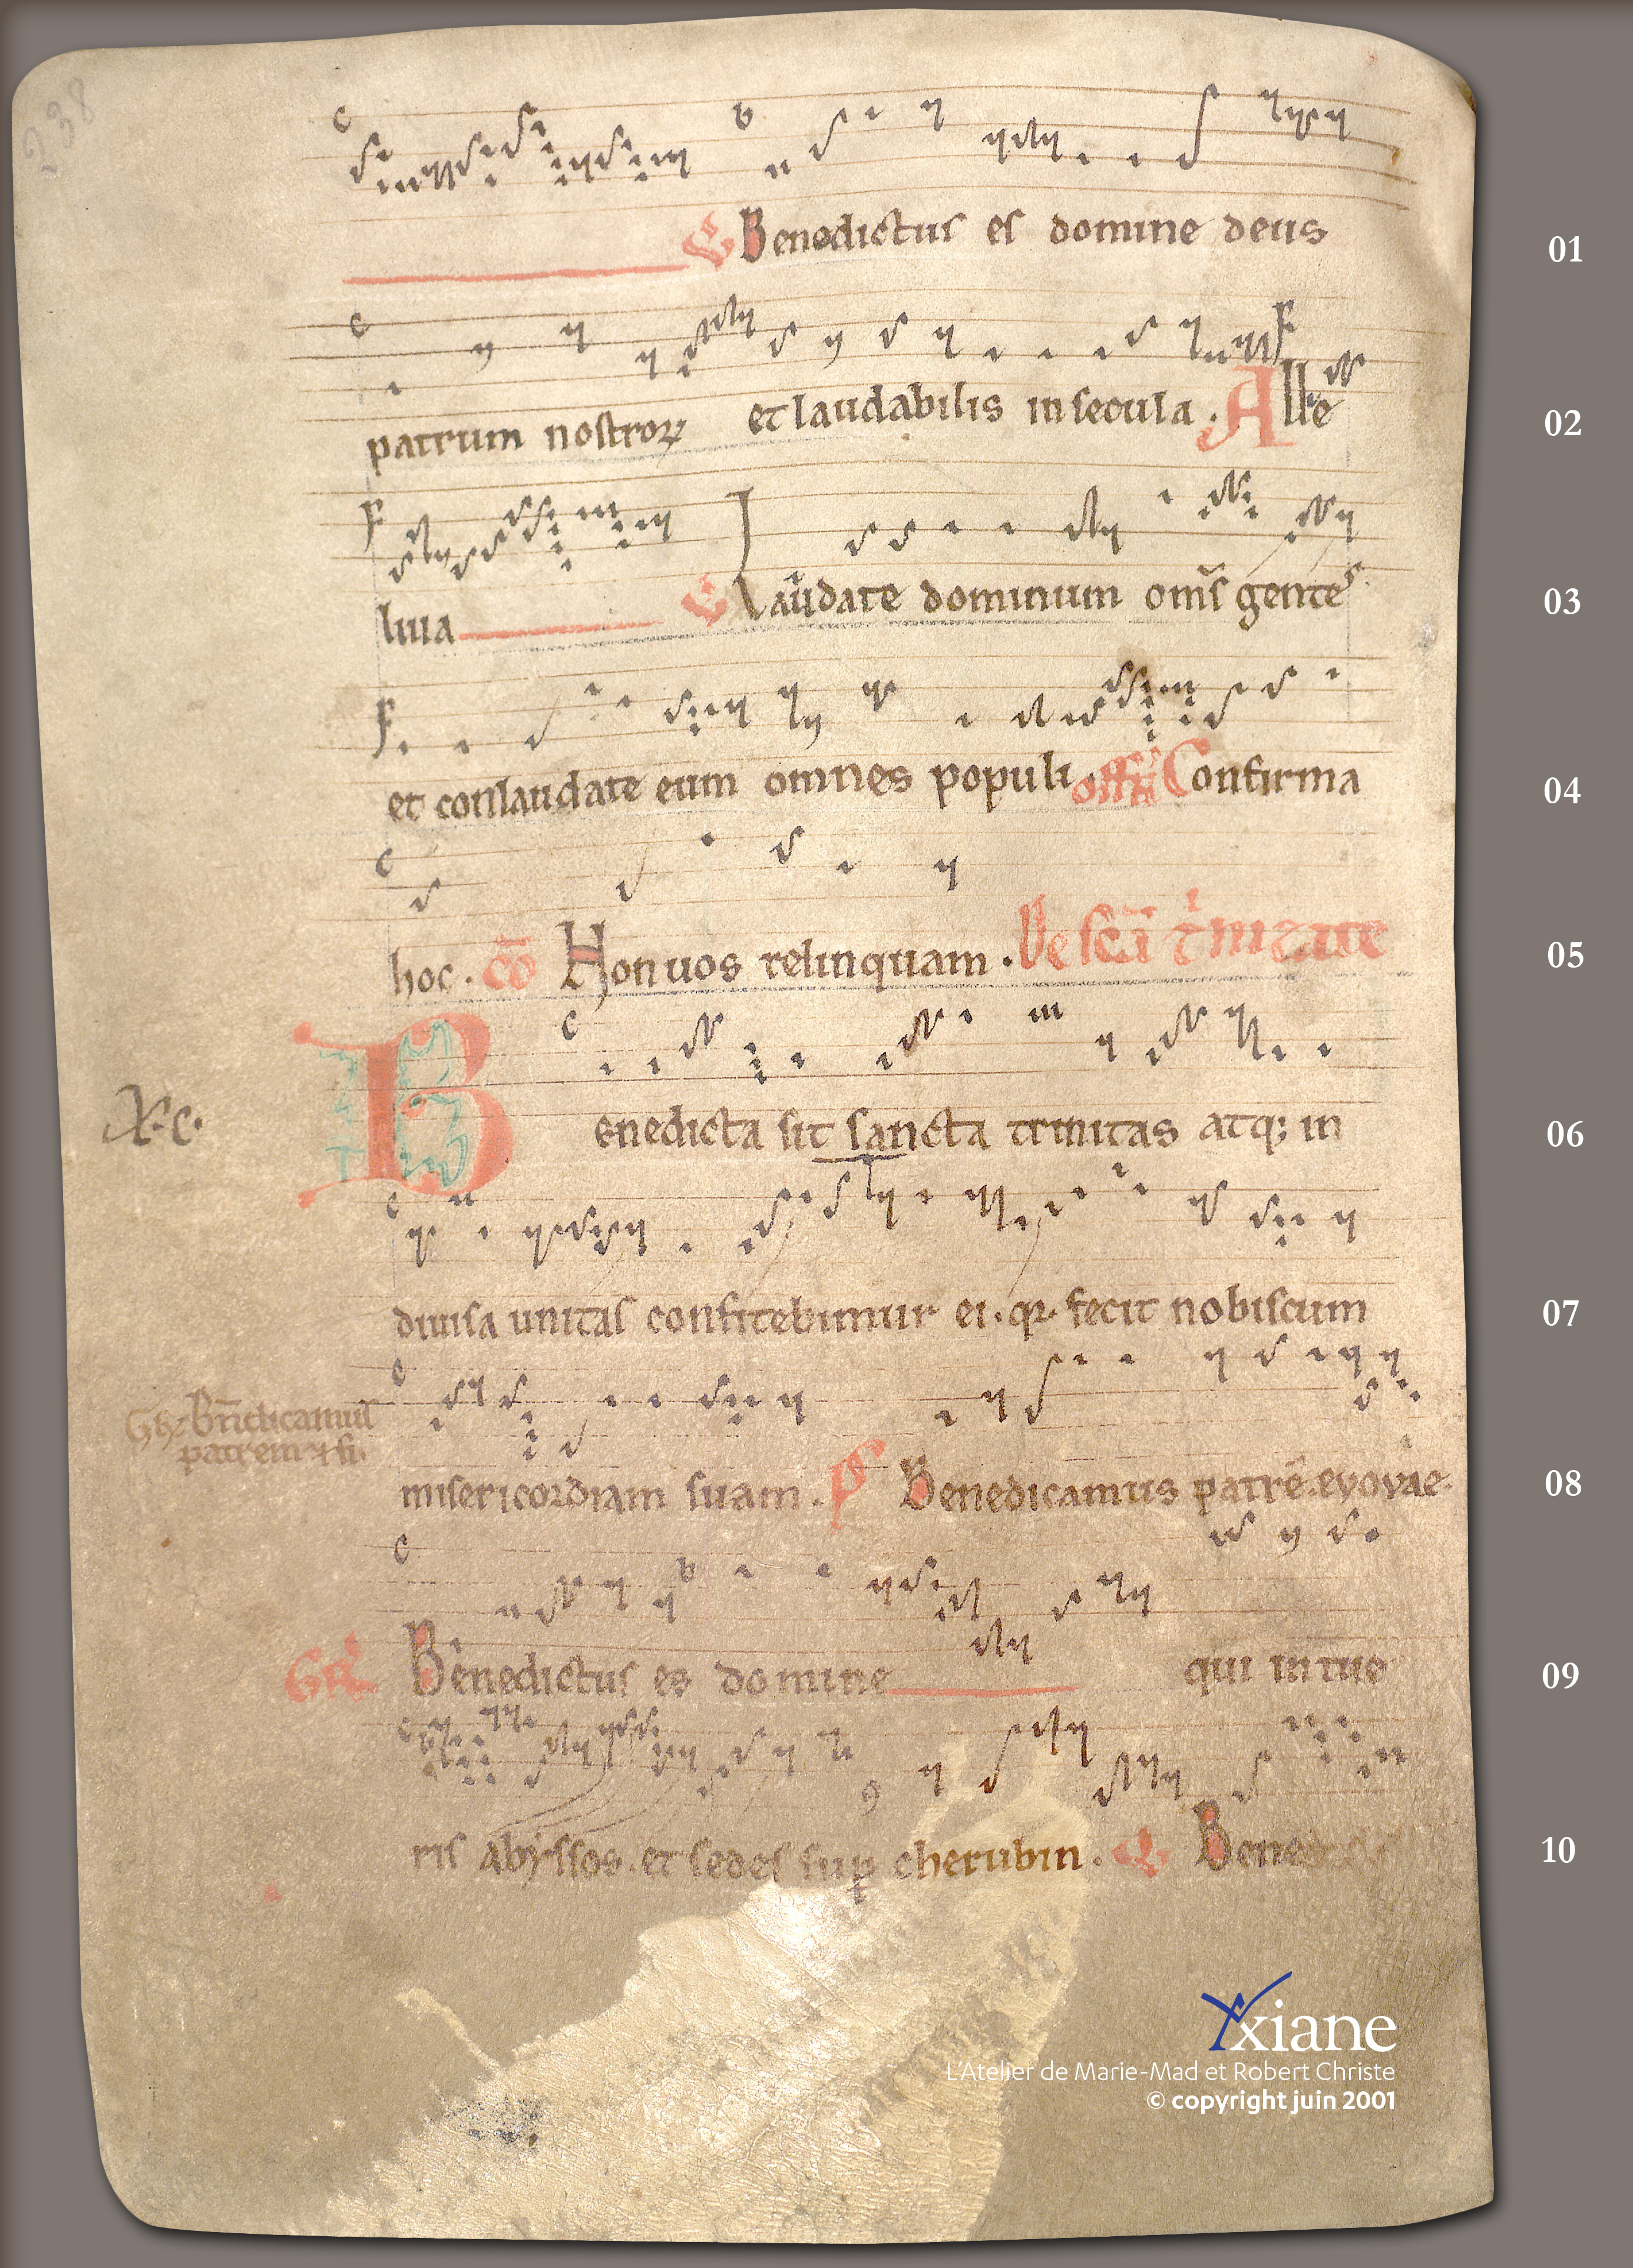 238
Benedictus es domine deus
01
patrum nostroꝝ et laudabilis in secula. Alle
02
luia Laudate dominum om̄s gentes
03
et conlaudate eum omnes populi. off Confirma
04
hoc. cō Non uos relinquam. De sc̄a t'nitate
05
X. c.
Benedicta sit sancta trinitas atq; in
06
diuisa unitas confitebimur ei. qꝛ fecit nobiscum
07
Bn̄dicamus
patrem ⁊ fi.
misericordiam suam. ps Benedicamus patrē. evovae.
08
Gr̄ Benedictus es domine qui intue
09
ris abyssos. et sedes suꝑ cherubin. Bene
10
Axiane
L'Atelier de Marie-Mad et Robert Christe
© copyright juin 2001